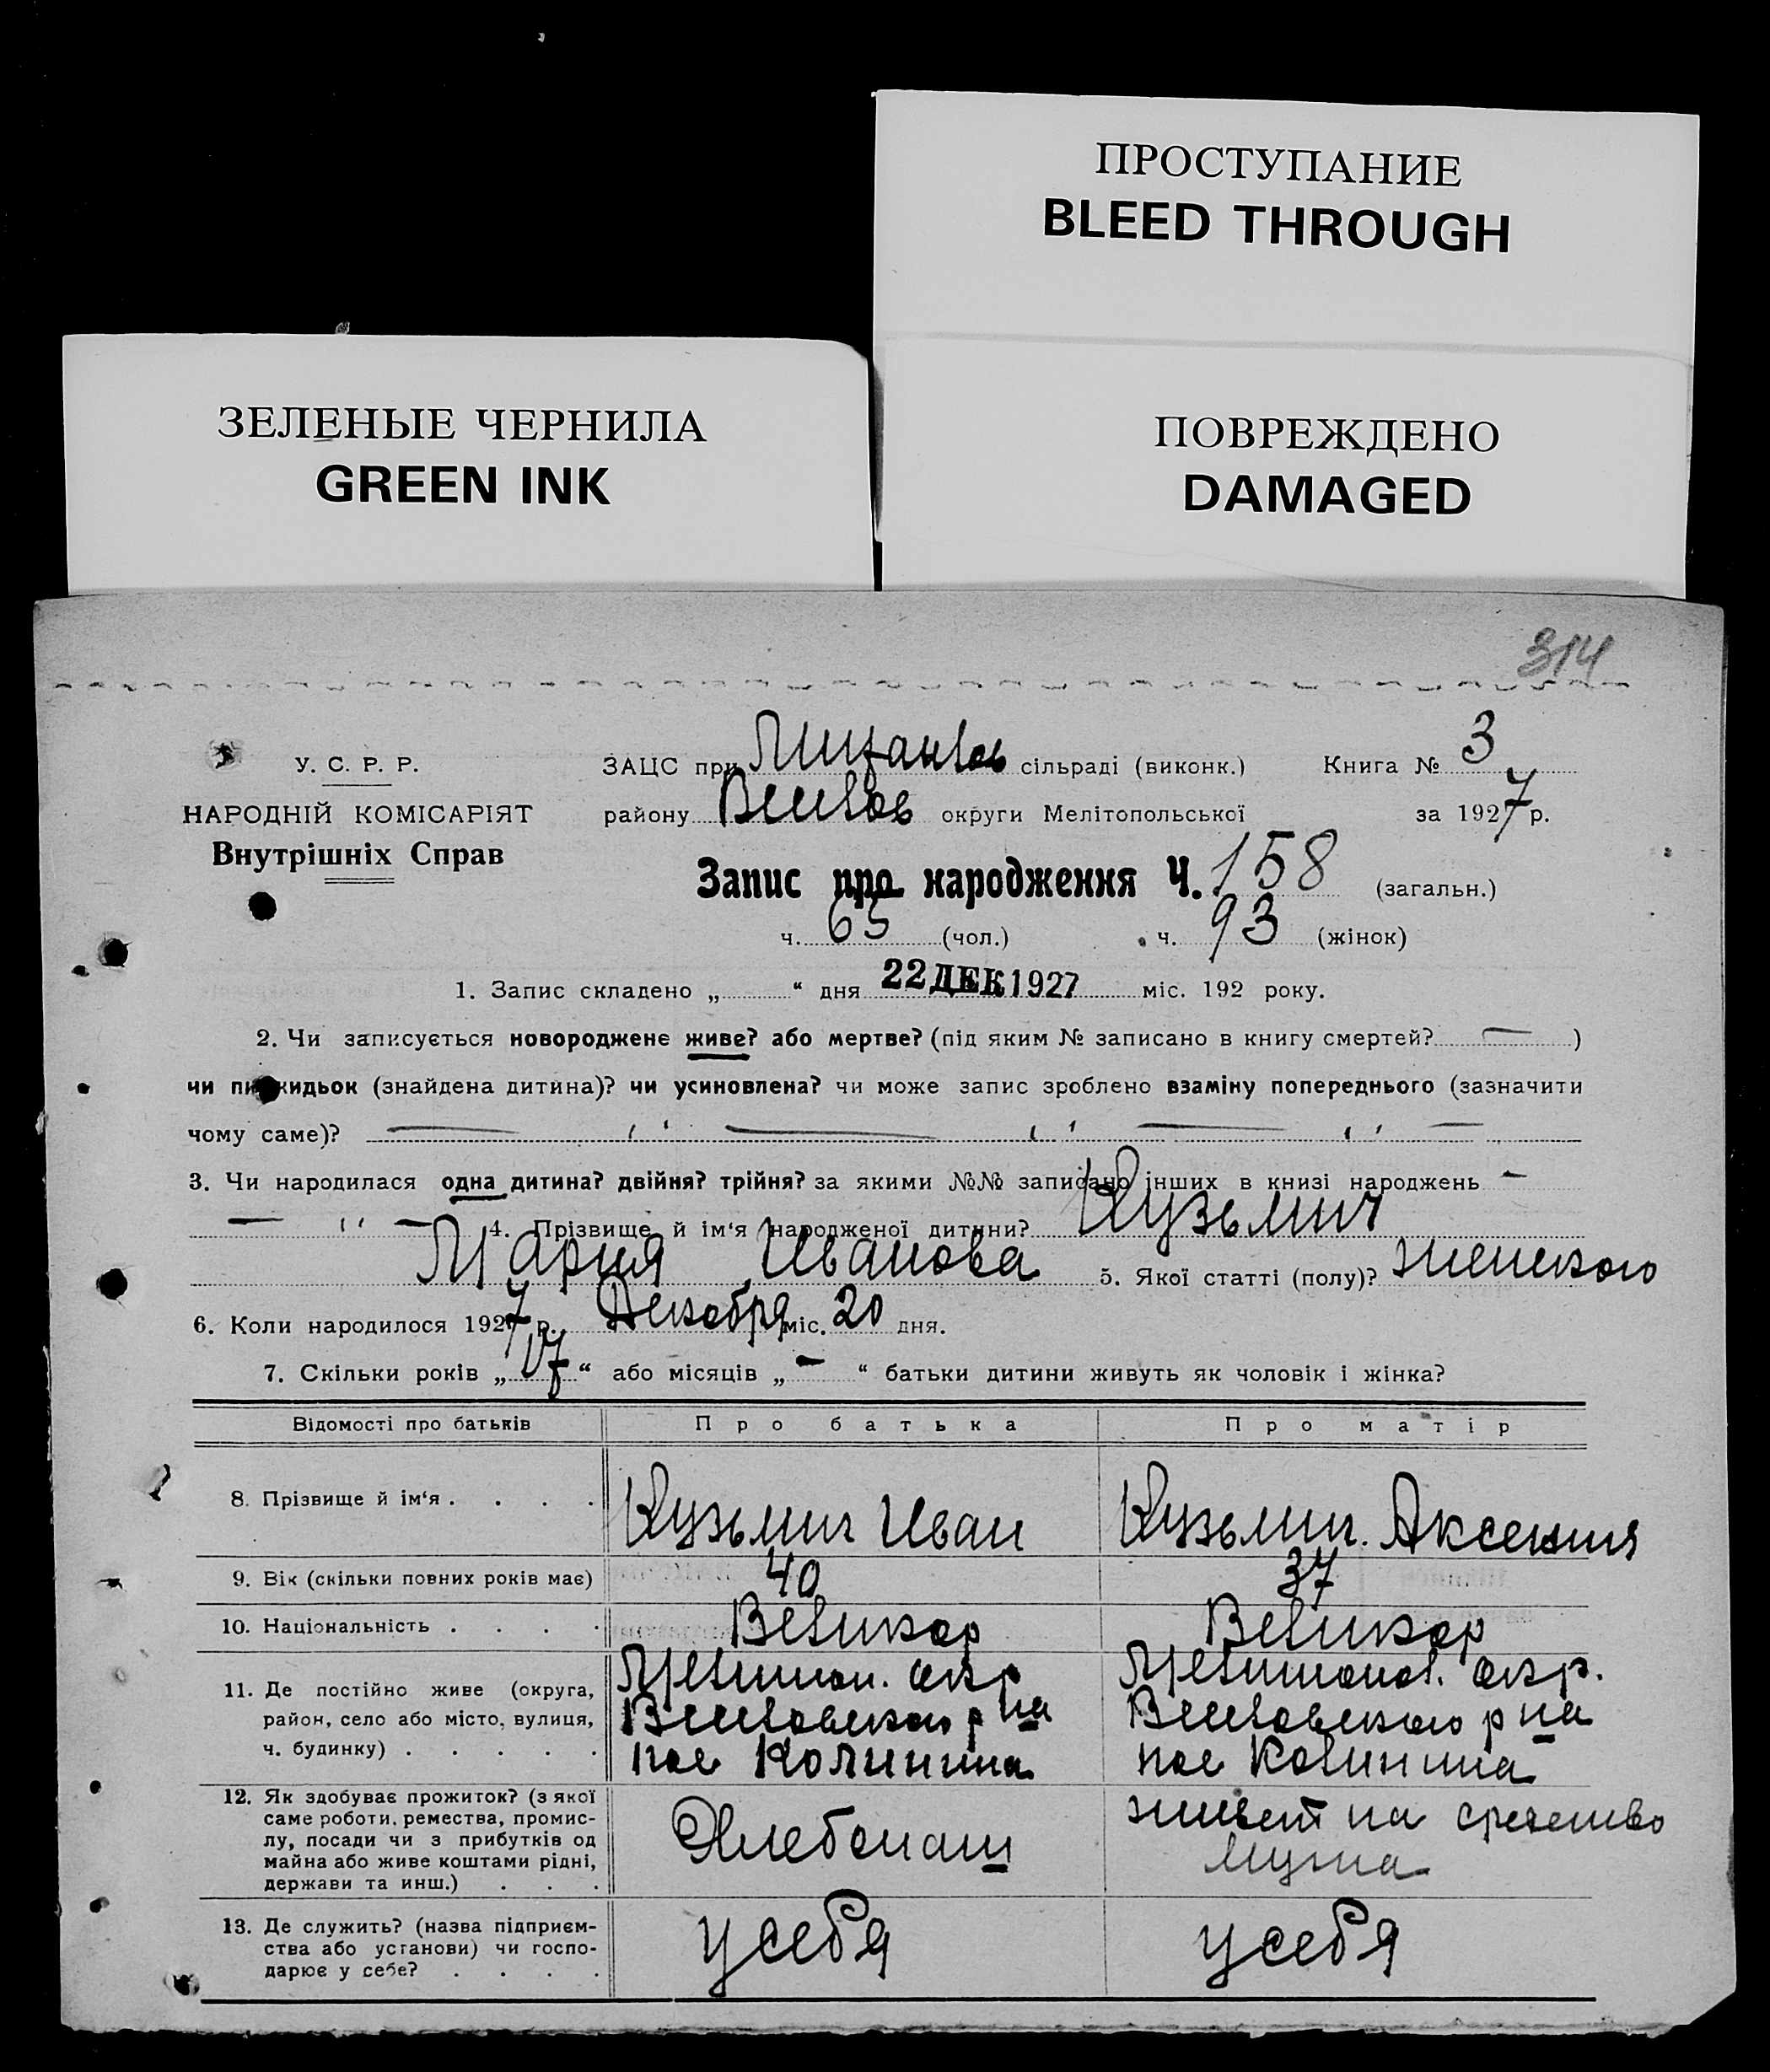 ПРОСТУПАНИЕ
BLEED THROUGH
ЗЕЛЕНЫЕ ЧЕРНИЛА
GREEN INK
ПОВРЕЖДЕНО
DAMAGED
314
У. С. Р. Р.
НАРОДНІЙ КОМІСАРІЯТ
Внутрішніх Справ
ЗАЦС при сільраді (виконк.) Книга № 3
району округи Мелітопольської за 1927 р.
Запис про народження Ч. 158 (загальн.)
ч. 65 (чол.) ч. 93 (жінок)
1. Запис складено „ “ дня 22 ДЕК 1927 міс. 192 року.
2. Чи записується новороджене живе? або мертве? (під яким № записано в книгу смертей? — )
чи підкидьок (знайдена дитина)? чи усиновлена? чи може запис зроблено взаміну попереднього (зазначити
чому саме)? — „ — „ — „ —
3. Чи народилася одна дитина? двійня? трійня? за якими №№ записано інших в книзі народжень —
— „ — 4. Прізвище й ім‘я народженої дитини? Кузьмич
Мария Иванова 5. Якої статті (полу)? женского
6. Коли народилося 1927 р. Декабря міс. 20 дня.
7. Скільки років „17“ або місяців „ — “ батьки дитини живуть як чоловік і жінка?
Відомості про батьків Про батька Про матір
8. Прізвище й ім‘я . . . . Кузьмич Иван Кузьмич. Аксения
9. Вік (скільки повних років має) 40 37
10. Національність . . . . Великор Великор
11. Де постійно живе (округа, Мелитоп. окр Мелитопол. окр.
район, село або місто, вулиця, р на р на
ч. будинку) . . . . . пос Колинина пос Колинина
12. Як здобуває прожиток? (з якої живет на средство
саме роботи, ремества, промис-
лу, посади чи з прибутків од Хлебопаш мужа
майна або живе коштами рідні,
держави та инш.) . . .
13. Де служить? (назва підприєм-
ства або установи) чи госпо- у себя у себя
дарює у себе? . . . .